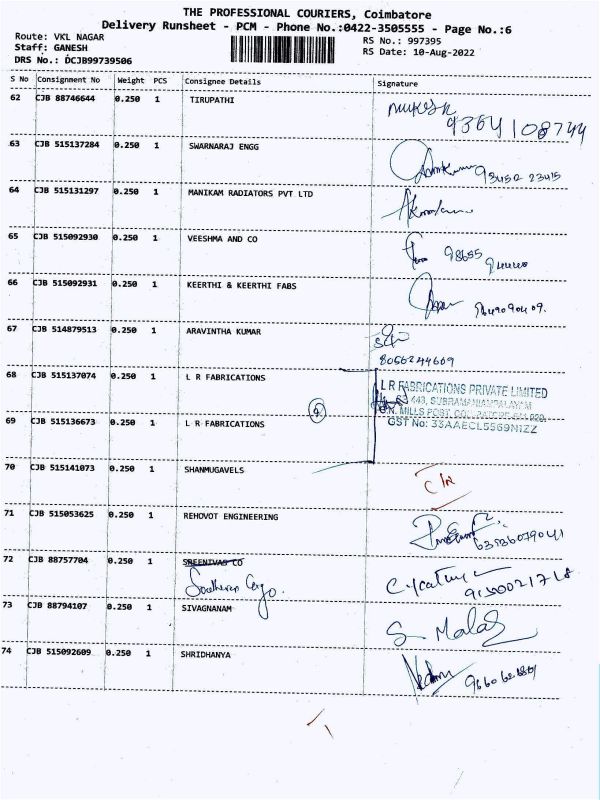 THE PROFESSIONAL COURIERS, Coimbatore
Delivery Runsheet - PCM - Phone No.:0422-3505555 - Page No.:6
Route: VKL NAGAR
Staff: GANESH
DRS No.: DCJB99739506
RS No.: 997395
RS Date: 10-Aug-2022
S No Consignment No Weight PCS Consignee Details Signature
62 CJB 88746644 0.250 1 TIRUPATHI
63 CJB 515137284 0.250 1 SWARNARAJ ENGG
64 CJB 515131297 0.250 1 MANIKAM RADIATORS PVT LTD
65 CJB 515092930 0.250 1 VEESHMA AND CO
66 CJB 515092931 0.250 1 KEERTHI & KEERTHI FABS
67 CJB 514879513 0.250 1 ARAVINTHA KUMAR
8066244609
68 CJB 515137074 0.250 1 L R FABRICATIONS
L R FABRICATIONS PRIVATE LIMITED
443, SUBRAMANIAMPALAYAM
MILLS POST,
GST No: 33AAECL5569N1ZZ
69 CJB 515136673 0.250 1 L R FABRICATIONS
70 CJB 515141073 0.250 1 SHANMUGAVELS
71 CJB 515053625 0.250 1 REHOVOT ENGINEERING
72 CJB 88757704 0.250 1 SREENIVAS CO
Southern Cargo.
73 CJB 88794107 0.250 1 SIVAGNANAM
S. Malar
74 CJB 515092609 0.250 1 SHRIDHANYA